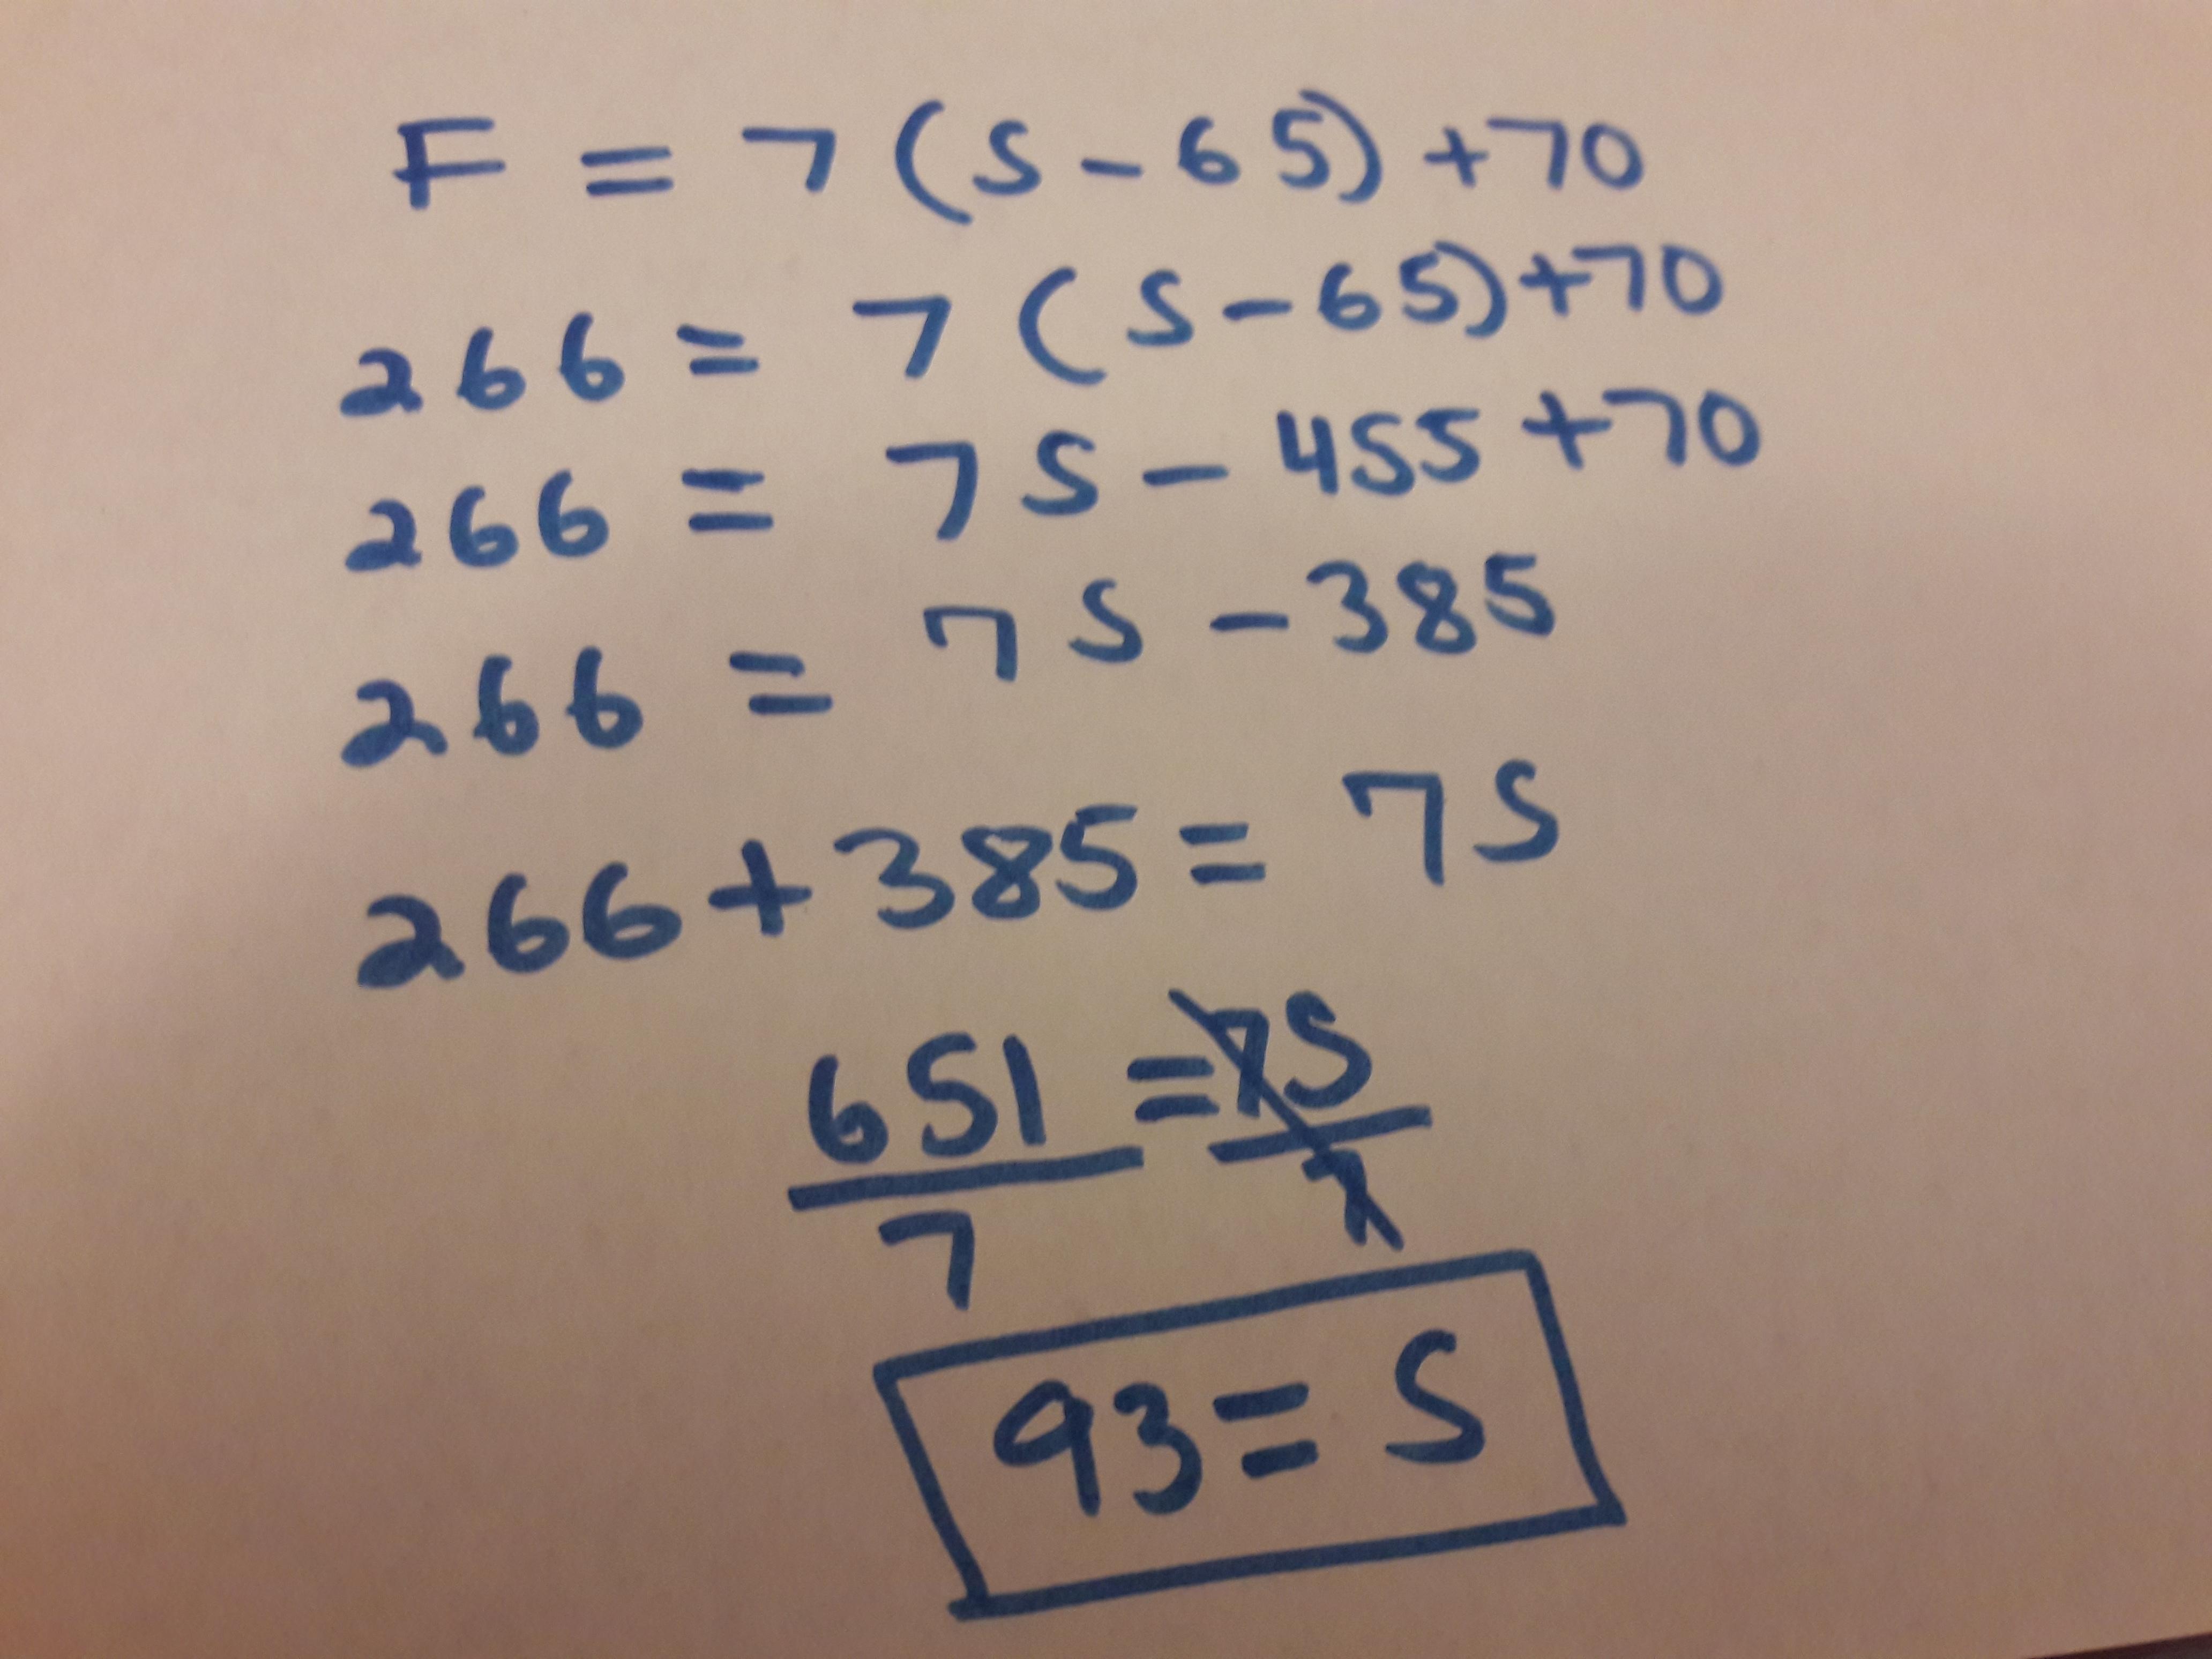 F = 7(S-65)+70
266 = 7(S-65)+70
266 = 7S-455+70
266 = 7S-385
266+385=7S
651/7=7S/7
93=S